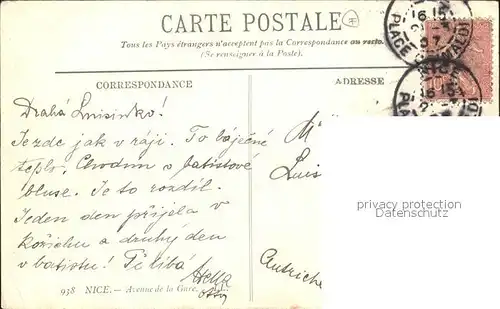 CARTE POSTALE
F
Tous les Pays étrangers n'acceptent pas la Correspondance au recto.
(Se renseigner à la Poste).
CORRESPONDANCE
ADRESSE
Drahá Luisinko!
Je zde jak v ráji. To báječné
teplo. Chodím v batistové
bluse. Je to rozdíl.
Jeden den přijela v
kožichu a druhý den
v batistu! Tě líbá
Luis
Autriche
privacy protection
Datenschutz
938 NICE. — Avenue de la Gare. LL
16 15
PLACE